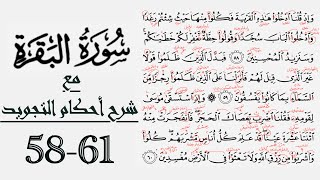 وَإِذْ قُلْنَا ٱدْخُلُوا۟ هَٰذِهِ ٱلْقَرْيَةَ فَكُلُوا۟ مِنْهَا حَيْثُ شِئْتُمْ رَغَدًا
وَٱدْخُلُوا۟ ٱلْبَابَ سُجَّدًا وَقُولُوا۟ حِطَّةٌ نَّغْفِرْ لَكُمْ خَطَٰيَٰكُمْ
وَسَنَزِيدُ ٱلْمُحْسِنِينَ ٥٨ فَبَدَّلَ ٱلَّذِينَ ظَلَمُوا۟ قَوْلًا
غَيْرَ ٱلَّذِى قِيلَ لَهُمْ فَأَنزَلْنَا عَلَى ٱلَّذِينَ ظَلَمُوا۟ رِجْزًا مِّنَ
ٱلسَّمَآءِ بِمَا كَانُوا۟ يَفْسُقُونَ ٥٩ وَإِذِ ٱسْتَسْقَىٰ مُوسَىٰ
لِقَوْمِهِۦ فَقُلْنَا ٱضْرِب بِّعَصَاكَ ٱلْحَجَرَ فَٱنفَجَرَتْ مِنْهُ
ٱثْنَتَا عَشْرَةَ عَيْنًا قَدْ عَلِمَ كُلُّ أُنَاسٍ مَّشْرَبَهُمْ كُلُوا۟
وَٱشْرَبُوا۟ مِن رِّزْقِ ٱللَّهِ وَلَا تَعْثَوْا۟ فِى ٱلْأَرْضِ مُفْسِدِينَ ٦٠
سُورَةُ البَقَرَةِ
مع
شرح أحكام التجويد
58-61